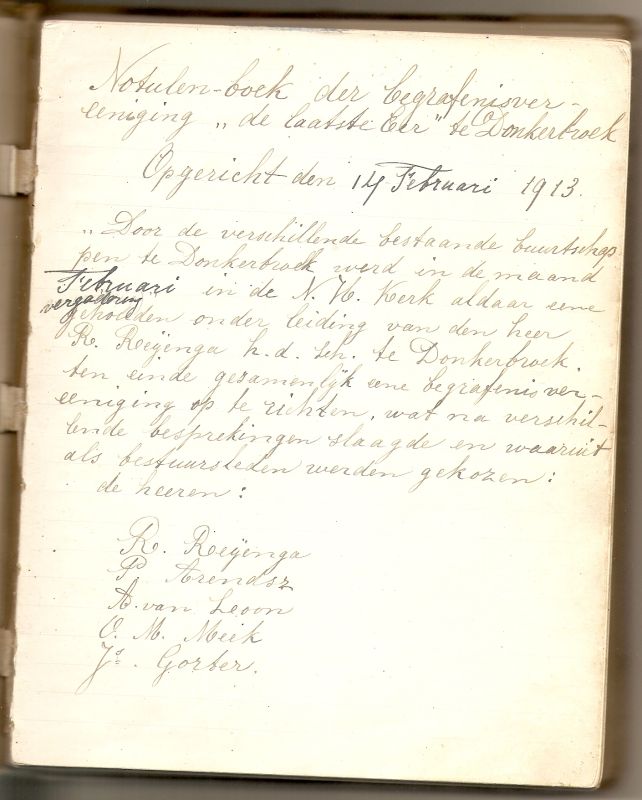 Notulen-boek der begrafenisver-
eeniging „de laatste Eer" te Donkerbroek
Opgericht den 14 Februari 1913.
„Door de verschillende bestaande buurtschap-
pen te Donkerbroek werd in de maand
Februari in de N. H. Kerk aldaar eene
vergadering
gehouden onder leiding van den heer
R. Reijenga h. d. sch. te Donkerbroek.
ten einde gezamenlijk eene begrafenisver-
eeniging op te richten, wat na verschil-
lende besprekingen slaagde en waaruit
als bestuursleden werden gekozen:
de heeren:
R. Reijenga
P. Arendsz
A. van Leoon
O. M. Meek
Js. Gorter.